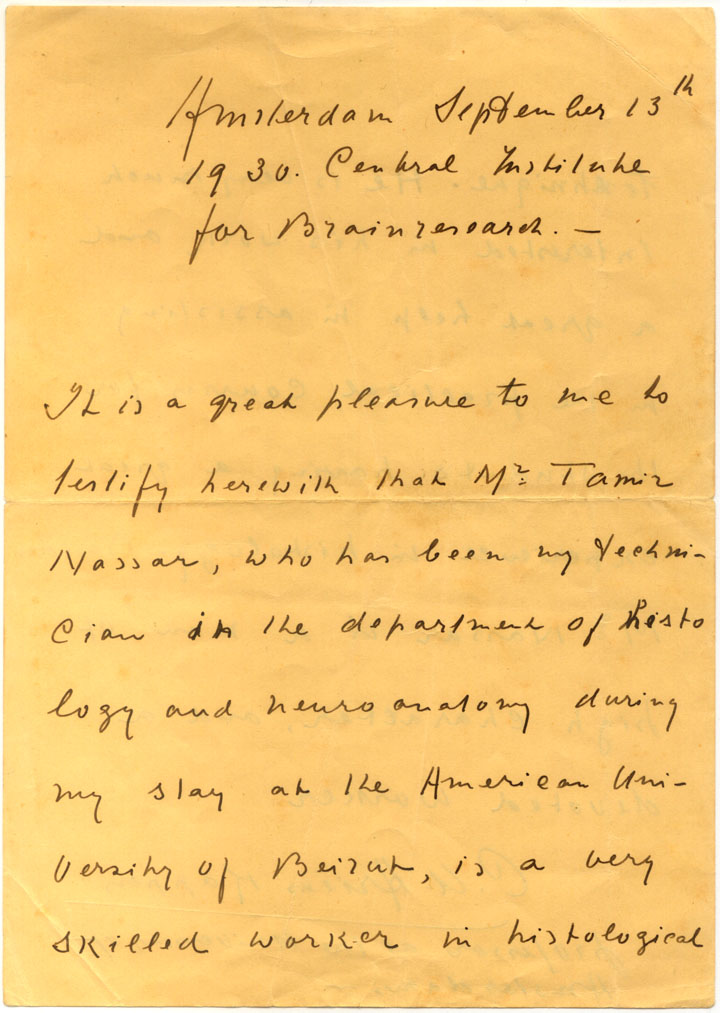 Amsterdam September 13th
1930. Central Institute
for Brainresearch. —
It is a great pleasure to me to
testify herewith that Mr. Tamir
Nassar, who has been my techni-
cian in the department of histo
logy and neuroanatomy during
my stay at the American Uni-
versity of Beirut, is a very
skilled worker in histological